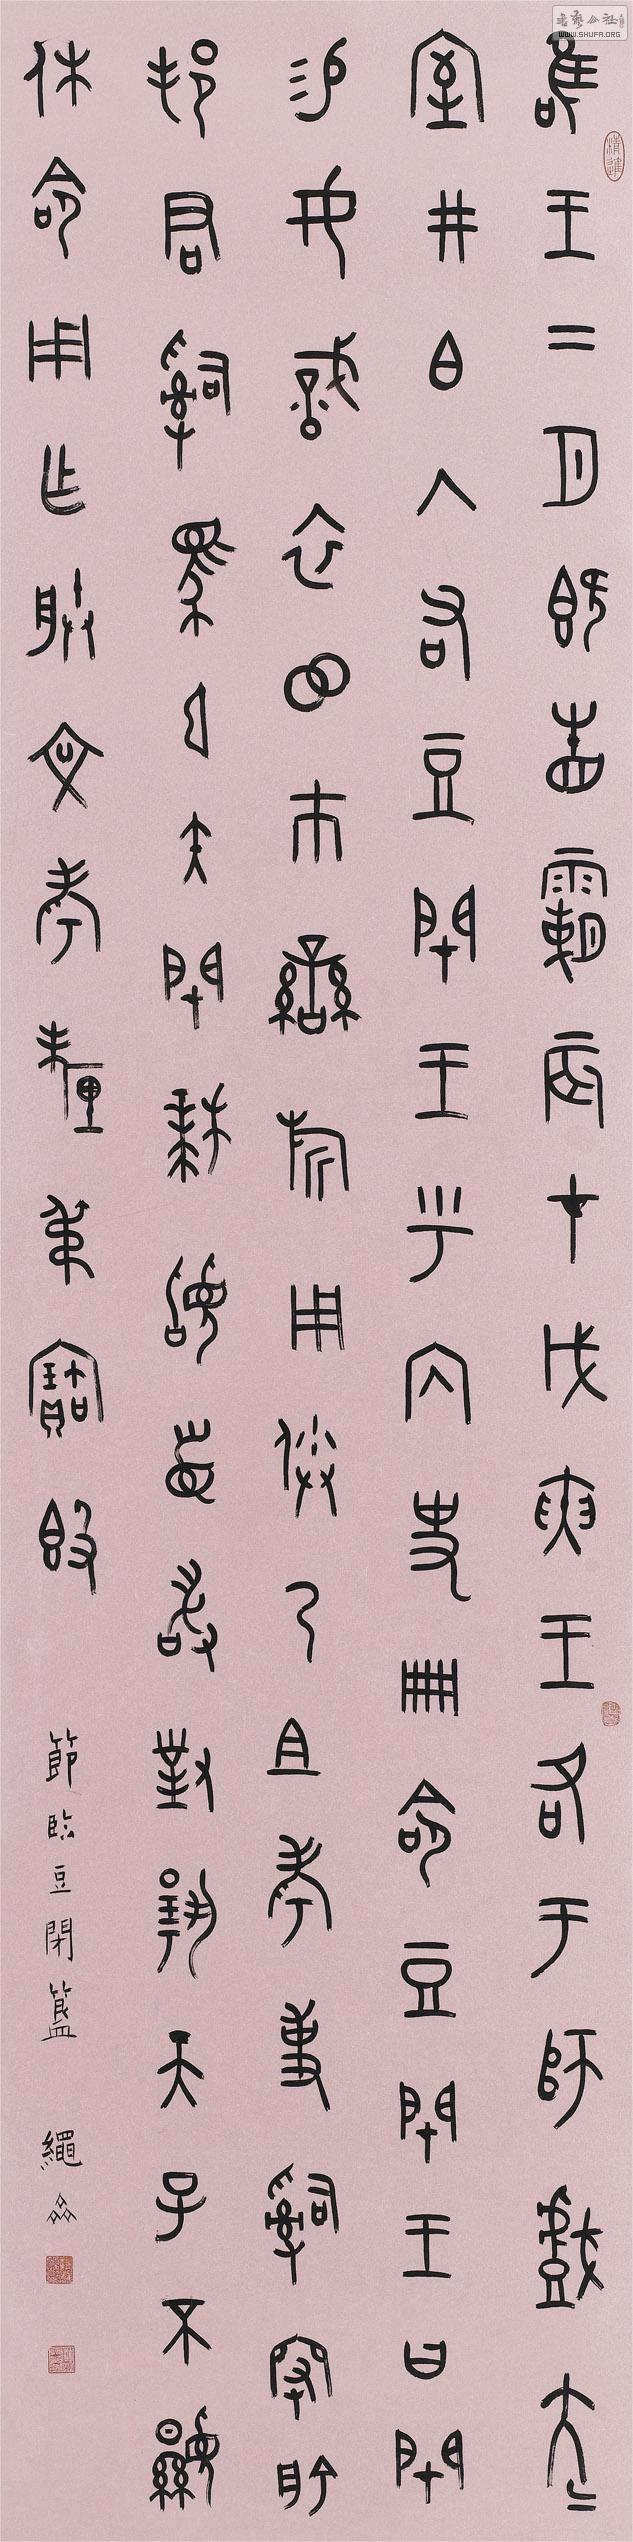 唯王二月既眚霸辰才戊寅王各于師戲大
室井白入右豆閉王乎內史冊命豆閉王曰閉
易女戠衣市鑾旂用乃且考事𤔲俞
邦君𤔲馬弓矢閉拜稽首敢對揚天子不顯
休命用乍朕文考釐叔寶簋
節臨豆閉簋 繩
书艺公社
WWW.SHUFA.ORG